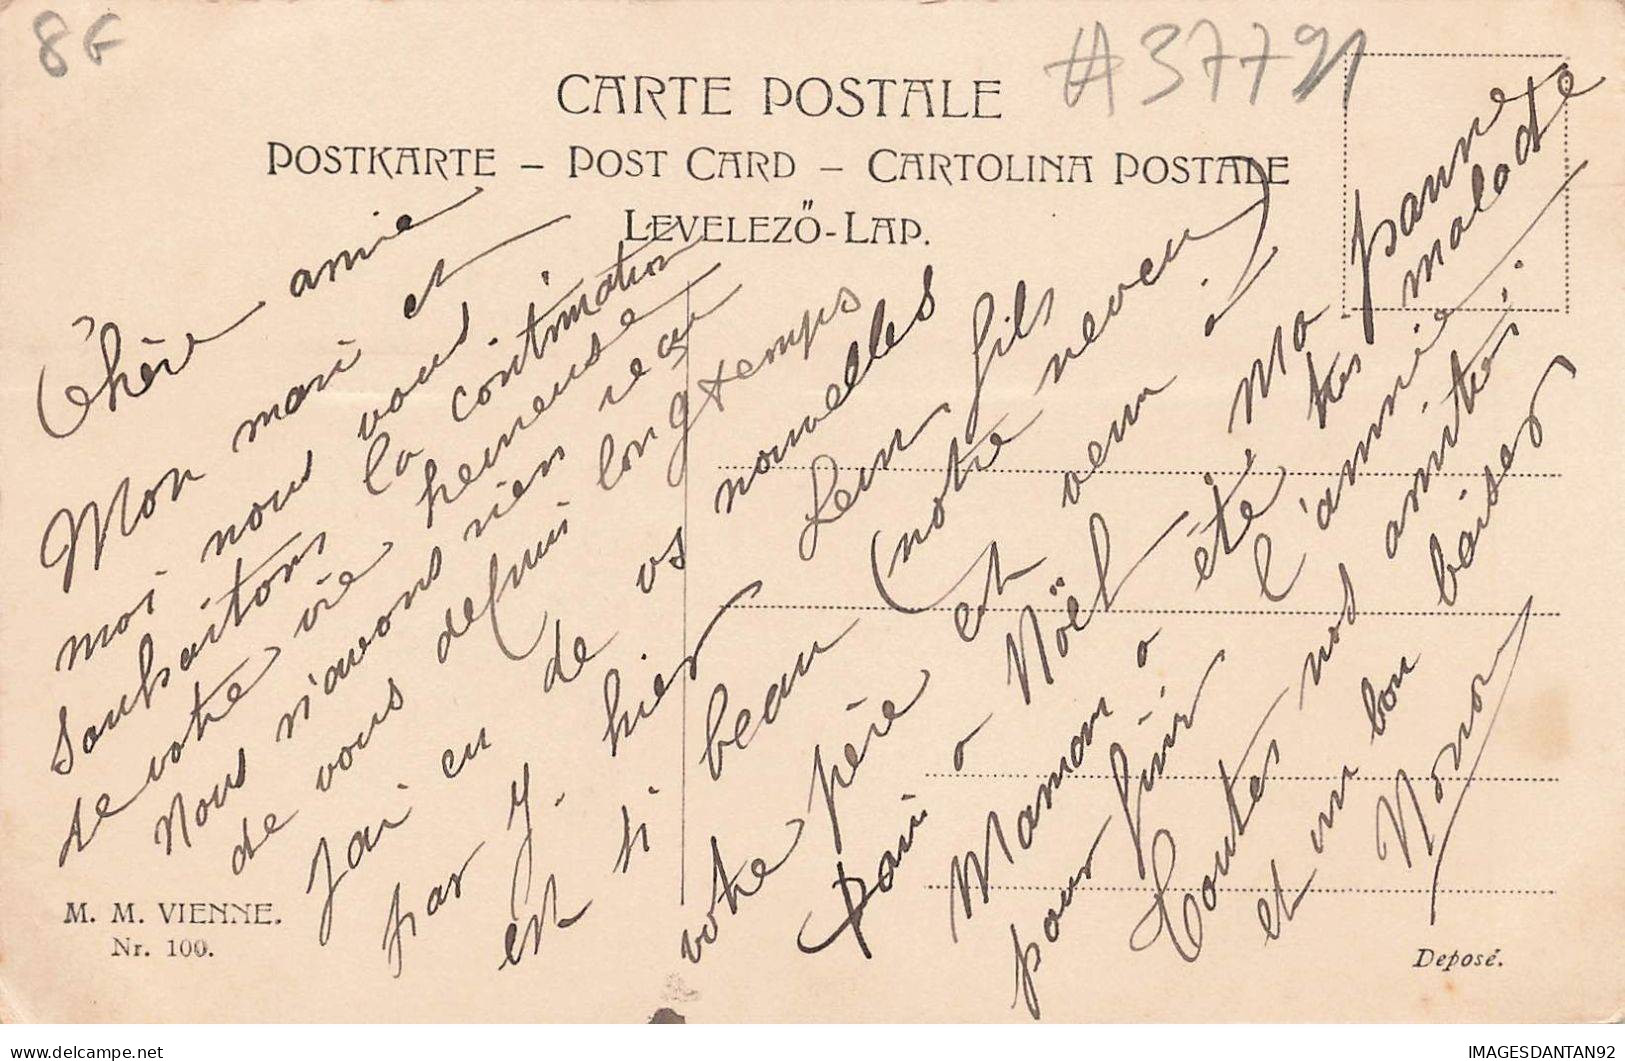 8F
#37791
CARTE POSTALE
POSTKARTE – POST CARD – CARTOLINA POSTALE
LEVELEZŐ-LAP.
Chère amie
Mon mari et
moi nous vous
souhaitons la continuation
de votre vie heureuse
Nous n'avons rien reçu
de vous depuis longtemps
J'ai eu de vs nouvelles
par Y. hier Leur fils
est si beau (notre neveu)
votre père est venu à
Paris à Noël
Maman a été, Ma pauvre
pour finir l'année
très malade
Toutes nos amitiés.
et un bon baiser
Nonor
M. M. VIENNE.
Nr. 100.
Deposé.
IMAGESDANTAN92